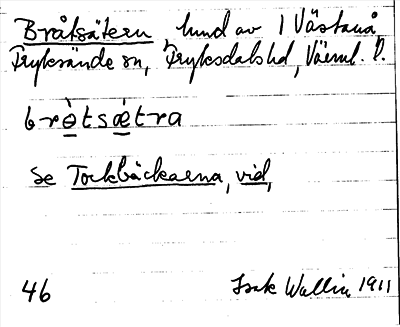 Bråtsätern, lund av 1 Västanå,
Fryksände sn, Fryksdals hd, Värml. l.
brò̱tsǽ̱tra
se Tockbäckarna, vid,
46 Isak Wallin 1911